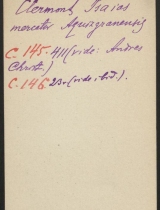 Clermont, Isaias
mercator Aquisgranensis
C. 145. 411 (vide: Andreas
Christ.)
C. 146. 23. (vide ibid.).